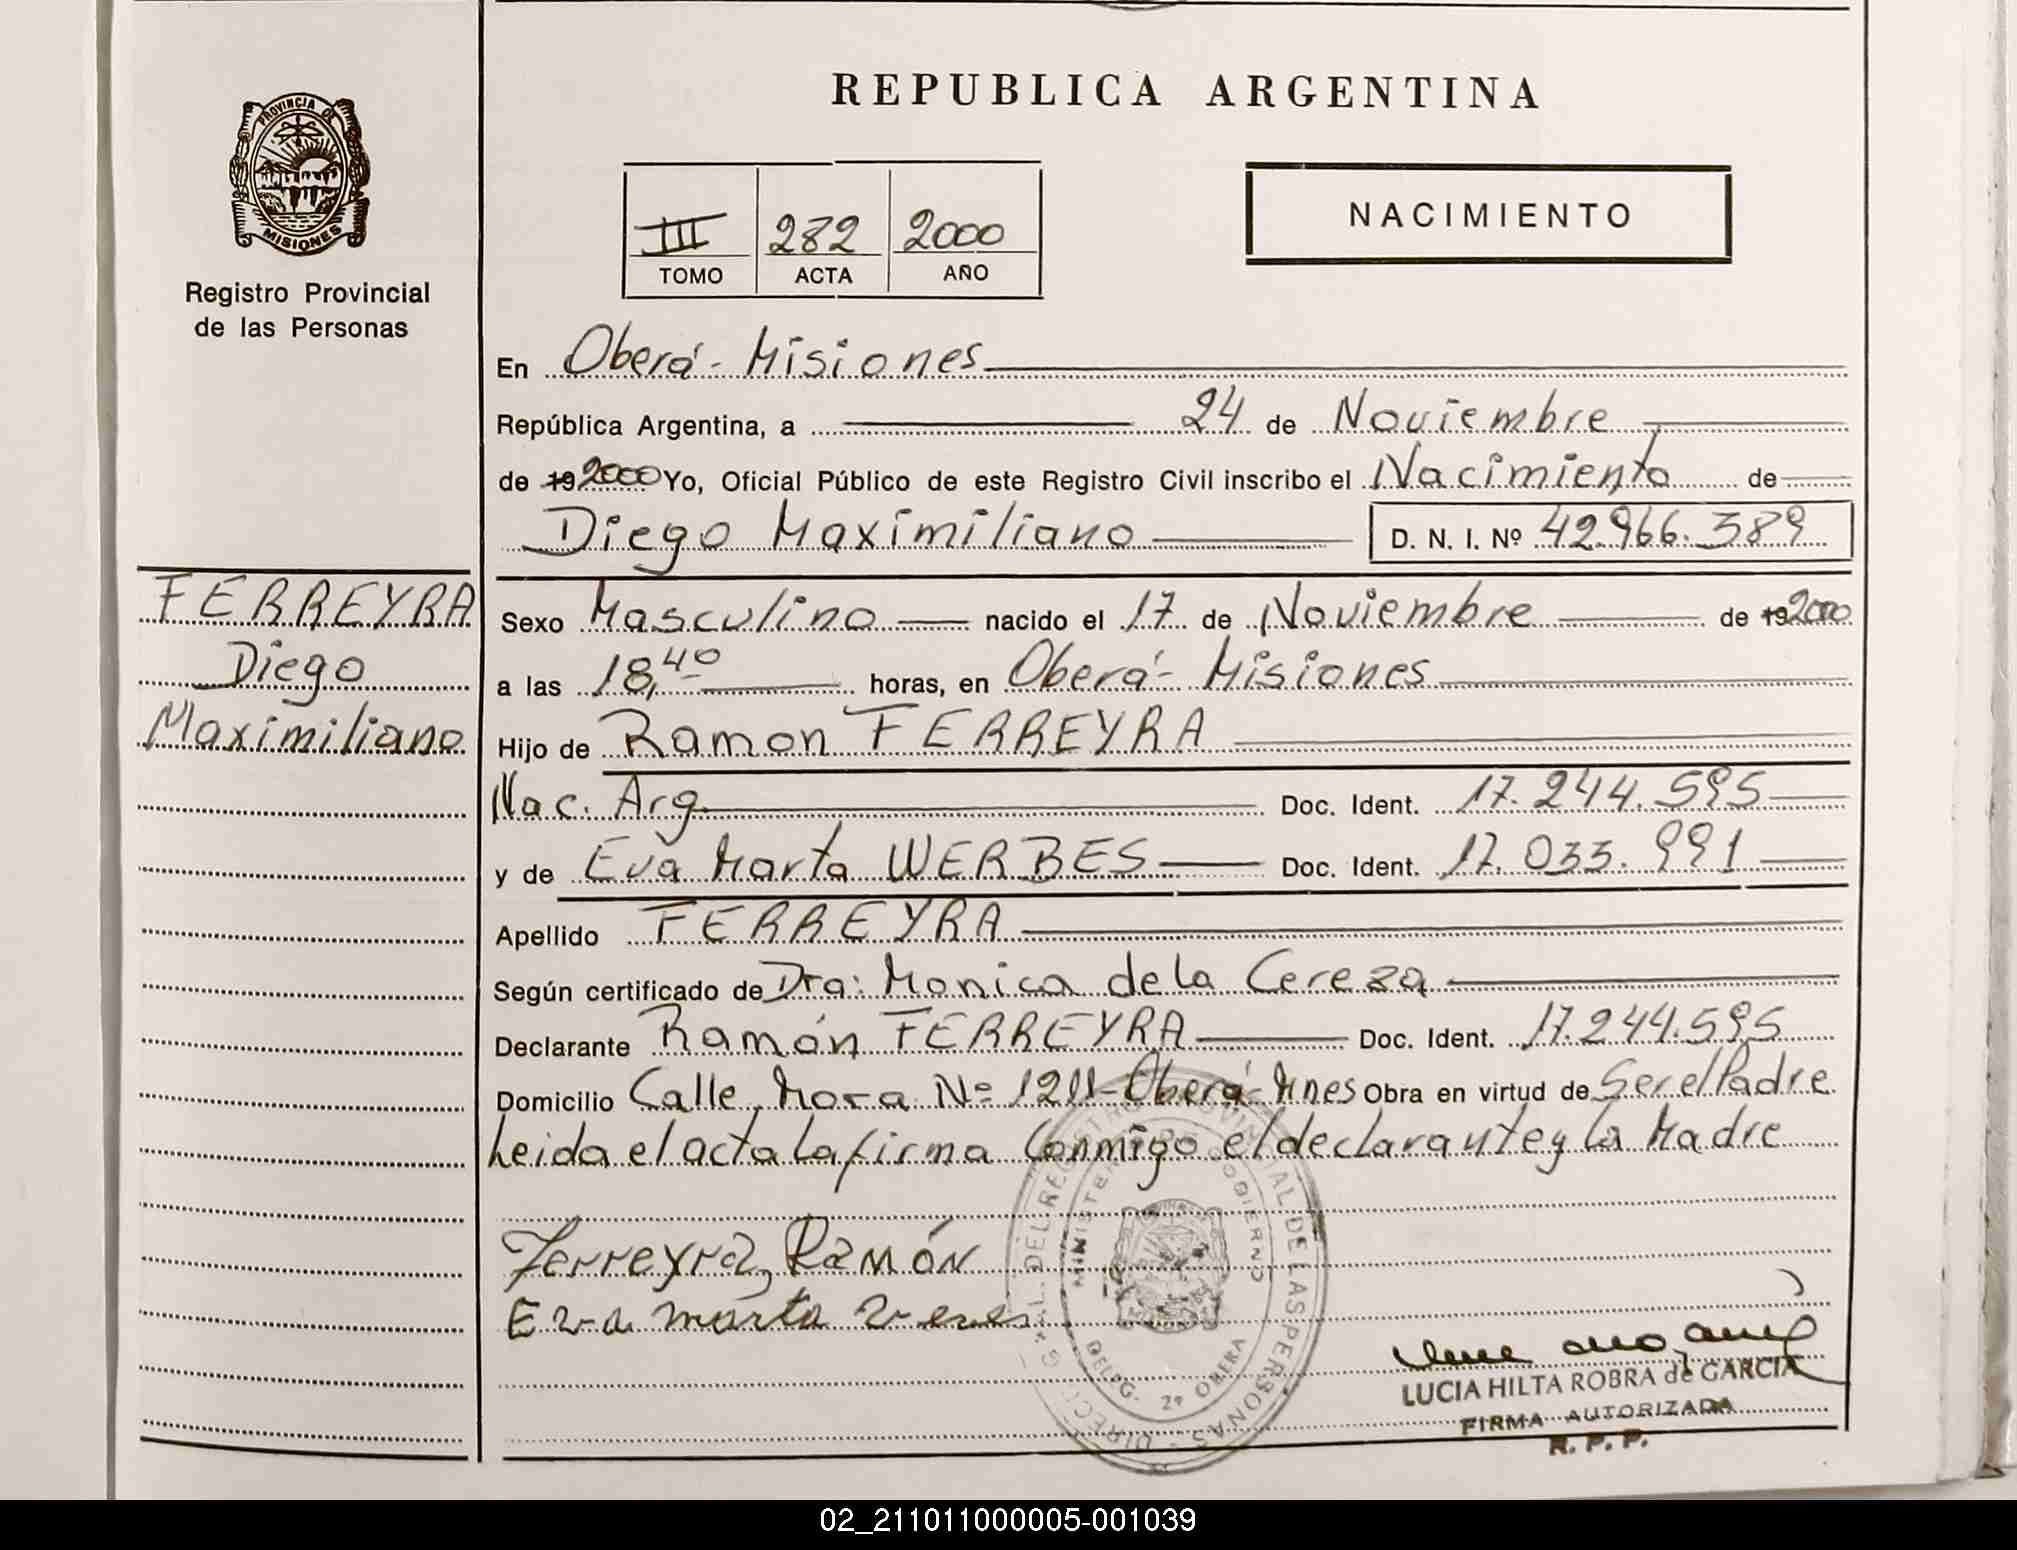 REPUBLICA ARGENTINA
PROVINCIA DE
MISIONES
Registro Provincial
de las Personas
III 282 2000
TOMO ACTA AÑO
NACIMIENTO
En Oberá - Misiones
República Argentina, a 24 de Noviembre
de 19 2000 Yo, Oficial Público de este Registro Civil inscribo el Nacimiento de
Diego Maximiliano D. N. I. Nº 42.966.389
FERREYRA
Diego
Maximiliano
Sexo Masculino nacido el 17 de Noviembre de 19 2000
a las 18,40 horas, en Oberá - Misiones
Hijo de Ramon FERREYRA
Nac. Arg. Doc. Ident. 17.244.595
y de Eva Marta WERBES Doc. Ident. 17.033.991
Apellido FERREYRA
Según certificado de Dra: Monica de la Cereza
Declarante Ramón FERREYRA Doc. Ident. 17.244.595
Domicilio Calle, Mora Nº 1211 - Oberá - Mnes Obra en virtud de Ser el Padre
Leida el acta La firma Conmigo el declarante y La Madre
Ferreyra, Ramón
Eva marta
DIRECC. GRAL. DEL REGISTRO PROVINCIAL DE LAS PERSONAS
MINISTERIO DE GOBIERNO
DELEG. 2ª OBERA
LUCIA HILTA ROBRA de GARCIA
FIRMA AUTORIZADA
R. P. P.
02_211011000005-001039